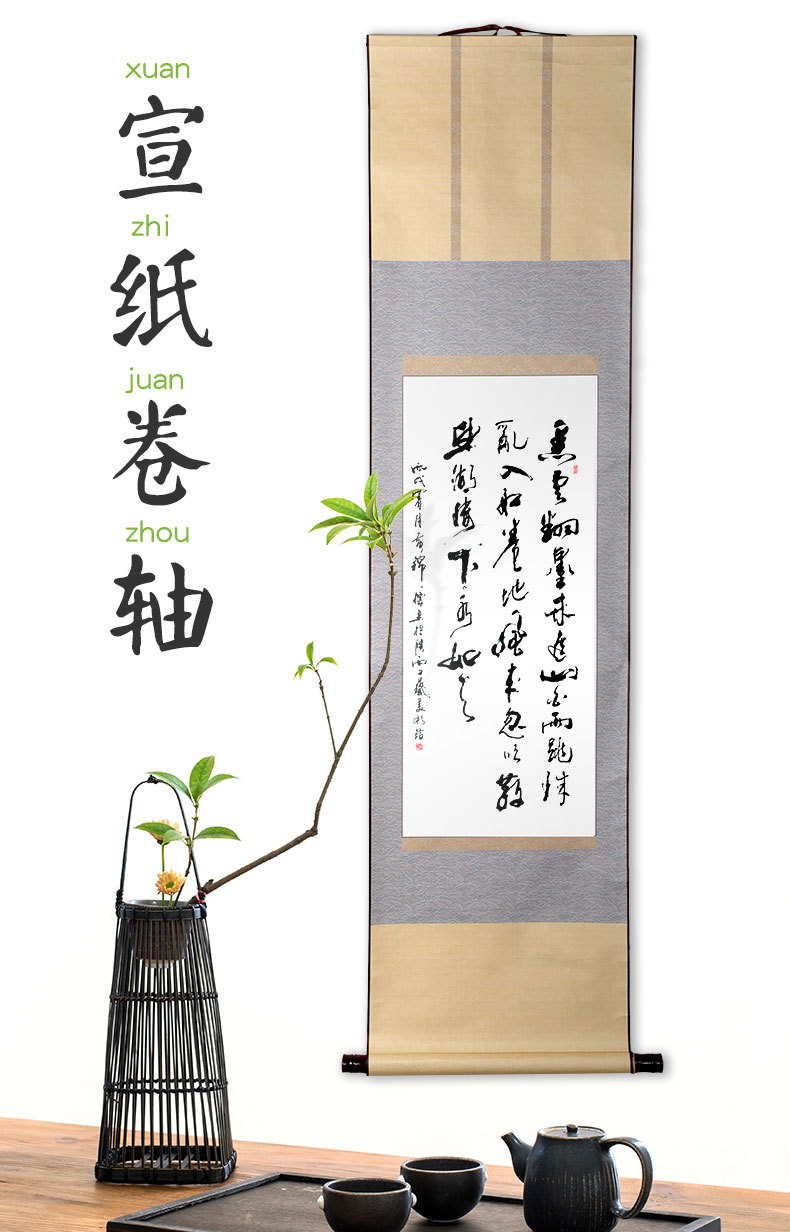 xuan
宣
zhi
纸
juan
卷
zhou
轴
黑雲翻墨未遮山白雨跳珠
亂入船卷地風來忽吹散
望湖樓下水如天